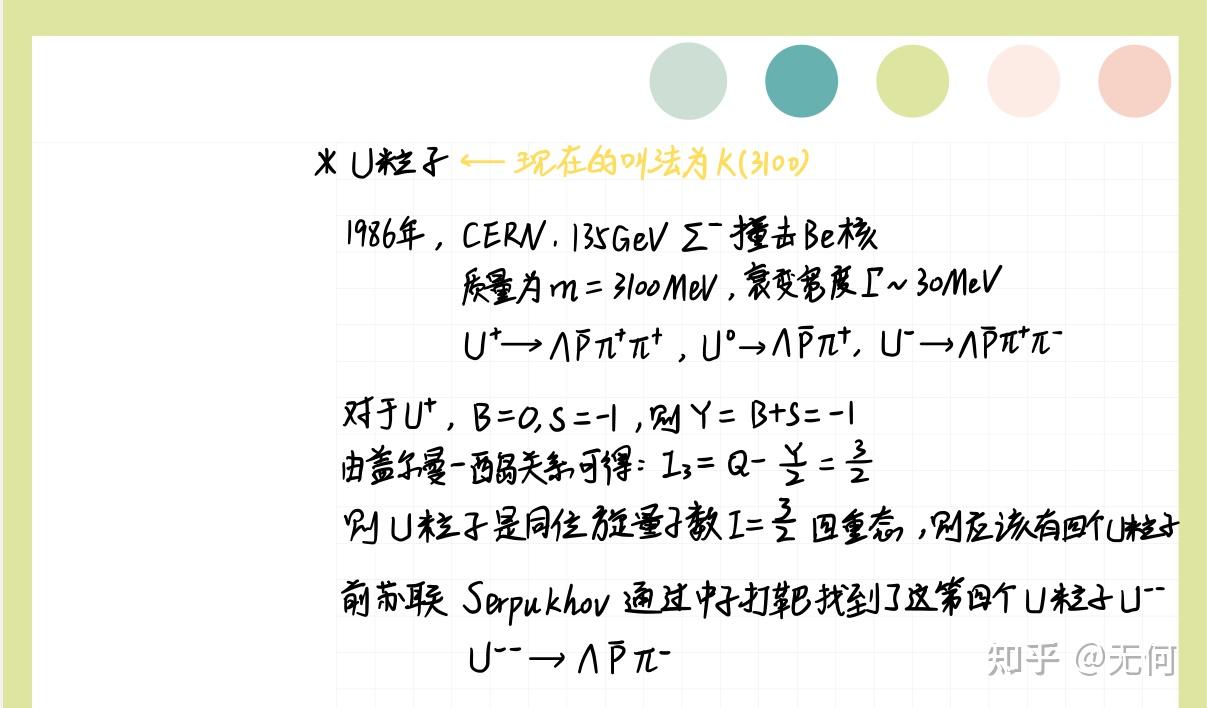 * U粒子 ← 现在的叫法为K(3100)
1986年, CERN. 135GeV Σ⁻ 撞击Be核
质量为m = 3100MeV, 衰变宽度Γ~30MeV
U⁺→Λp̄π⁺π⁺, U⁰→Λp̄π⁺, U⁻→Λp̄π⁺π⁻
对于U⁺, B=0, S=-1, 则Y=B+S=-1
由盖尔曼-西岛关系可得: I₃ = Q - Y/2 = 3/2
则U粒子是同位旋量子数I=3/2 四重态, 则应该有四个U粒子
前苏联 Serpukhov 通过中子打靶找到了这第四个U粒子U⁻⁻
U⁻⁻→Λp̄π⁻
知乎 @无何